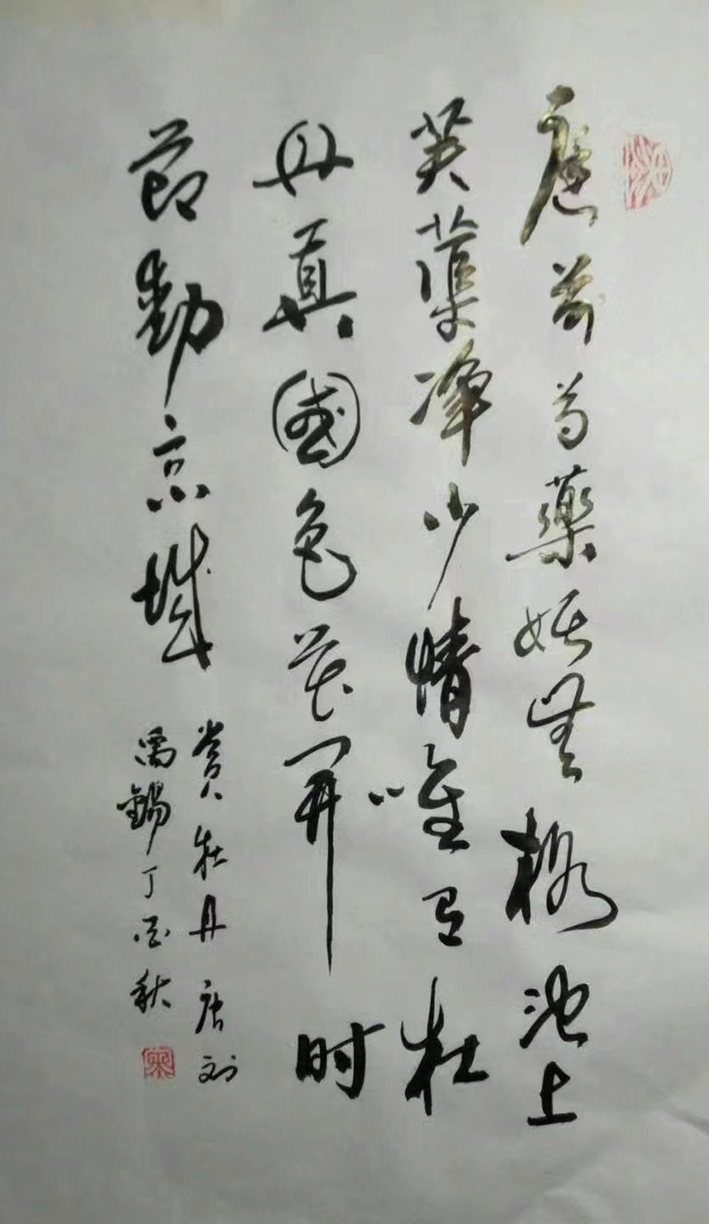 庭前芍药妖无格池上
芙蕖净少情唯有牡
丹真国色花开时
节动京城
赏牡丹唐刘
禹锡丁酉秋